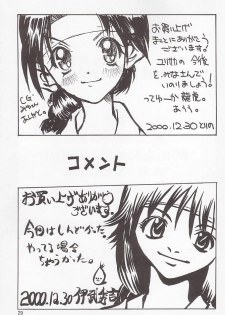 お買い上げ
まことにありがとう
ございます!
ユリカの今後
を、みなさんで
いのりましょう!
って
あうう。
2000.12.30
CG
コメント
お買い上げありがとう
ございます。
今回はしんどかった。
やってる場合
ちゃうかった。
2000.12.30
29